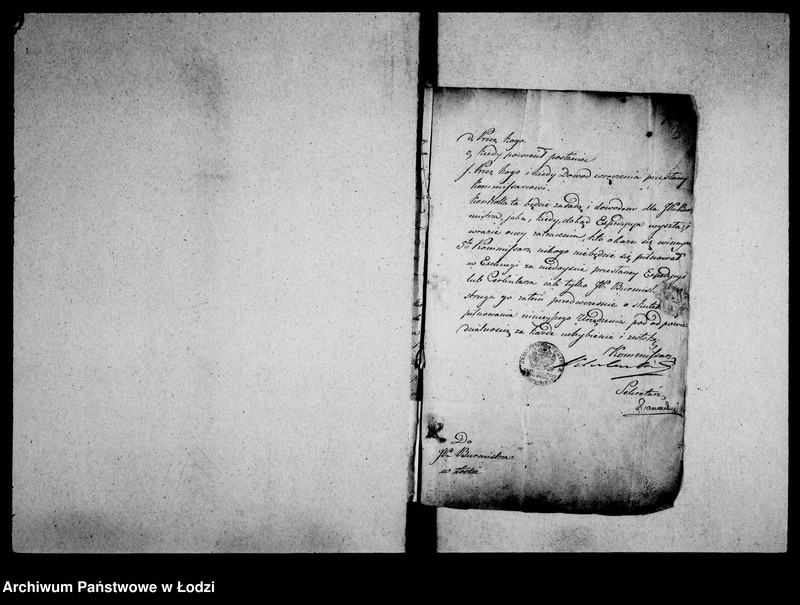 d, Przez kogo
e, kiedy powrócił posłaniec
f, Przez kogo i kiedy Dowód wręczenia przesłany
Kommissarzowi.
Kontrolla ta będzie zasadą i dowodem dla JPa Bur
mistrza, jaka, kiedy, dokąd Expedycya wyszła, i
w razie oney zatracenia, kto okaże się winnym
5te Kommissarz nikogo niebędzie się pilnował
w Exekucyi za niedoyście przesłaney Expedycyi
lub Cerkularza iak tylko JPa Burmist
strzega go zatem przedwcześnie o skutek
pilnowania ninieyszego Urządzenia pod odpowie
dzialnością za każde uchybienie i zwłokę
Kommissarz
Sekretarz
Do
JPa Burmistrza
w Łodzi
Archiwum Państwowe w Łodzi